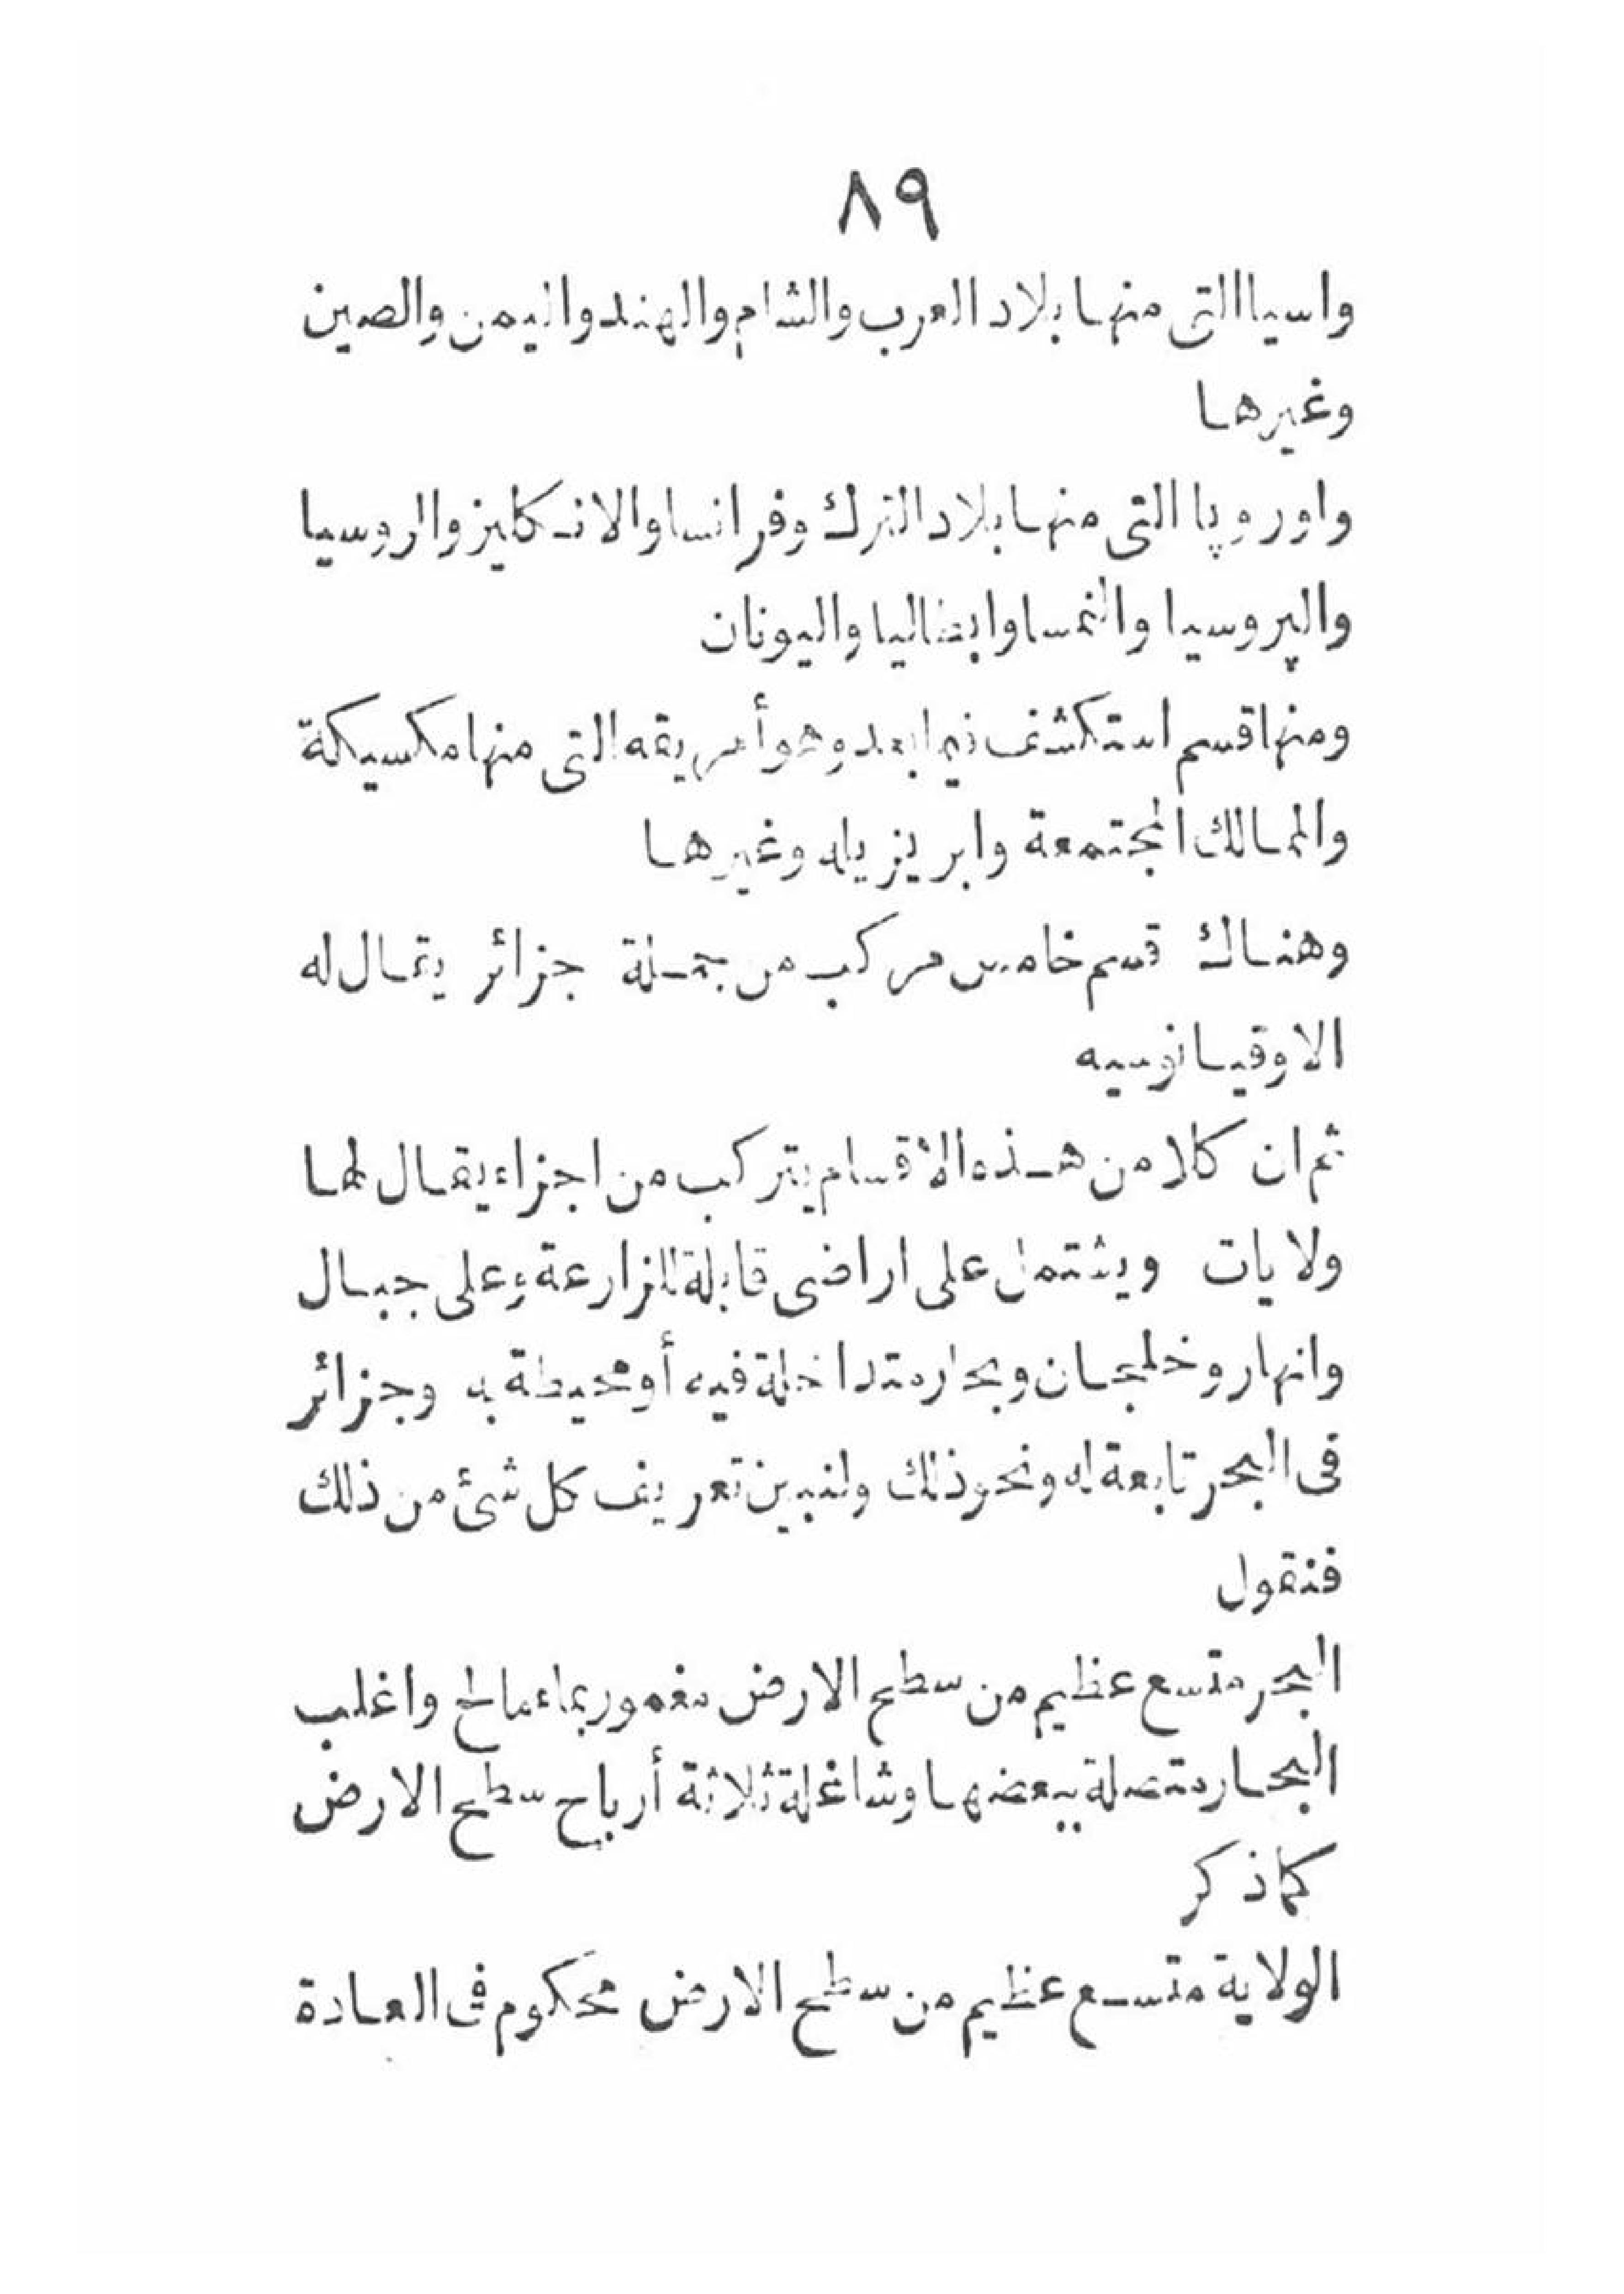 ٨٩
واسيا التى منها بلاد العرب والشام والهند واليمن والصين
وغيرها
واوروپا التى منها بلاد الترك وفرانسا والانكليز والروسيا
والپروسيا والنمسا وايطاليا واليونان
ومنها قسم استكشف فيما بعد وهو أمريقه التى منها مكسيكة
والممالك المجتمعة وابريزيله وغيرها
وهناك قسم خامس مركب من جملة جزائر يقال له
الاوقيانوسيه
ثم ان كلا من هذه الاقسام يتركب من اجزاء يقال لها
ولايات ويشتمل على اراضى قابلة للزارعة وعلى جبال
وانهار وخلجان وبحار متداخلة فيه أو محيطة به وجزائر
فى البحر تابعة له ونحو ذلك ولنبين تعريف كل شئ من ذلك
فنقول
البحر متسع عظيم من سطح الارض مغمور بماء مالح واغلب
البحار متصلة ببعضها وشاغلة ثلاثة أرباح سطح الارض
كما ذكر
الولاية متسع عظيم من سطح الارض محكوم فى العادة